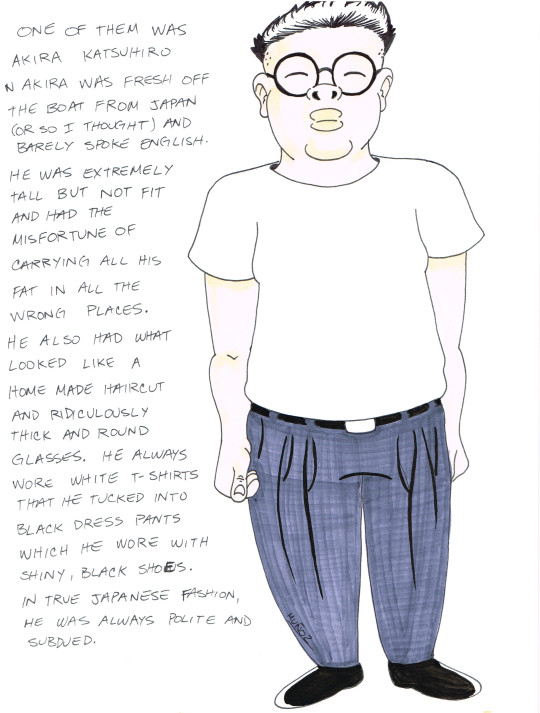 ONE OF THEM WAS
AKIRA KATSUHIRO
N AKIRA WAS FRESH OFF
THE BOAT FROM JAPAN
(OR SO I THOUGHT) AND
BARELY SPOKE ENGLISH.
HE WAS EXTREMELY
TALL BUT NOT FIT
AND HAD THE
MISFORTUNE OF
CARRYING ALL HIS
FAT IN ALL THE
WRONG PLACES.
HE ALSO HAD WHAT
LOOKED LIKE A
HOME MADE HAIRCUT
AND RIDICULOUSLY
THICK AND ROUND
GLASSES. HE ALWAYS
WORE WHITE T-SHIRTS
THAT HE TUCKED INTO
BLACK DRESS PANTS
WHICH HE WORE WITH
SHINY, BLACK SHOES.
IN TRUE JAPANESE FASHION,
HE WAS ALWAYS POLITE AND
SUBDUED.
MUÑOZ